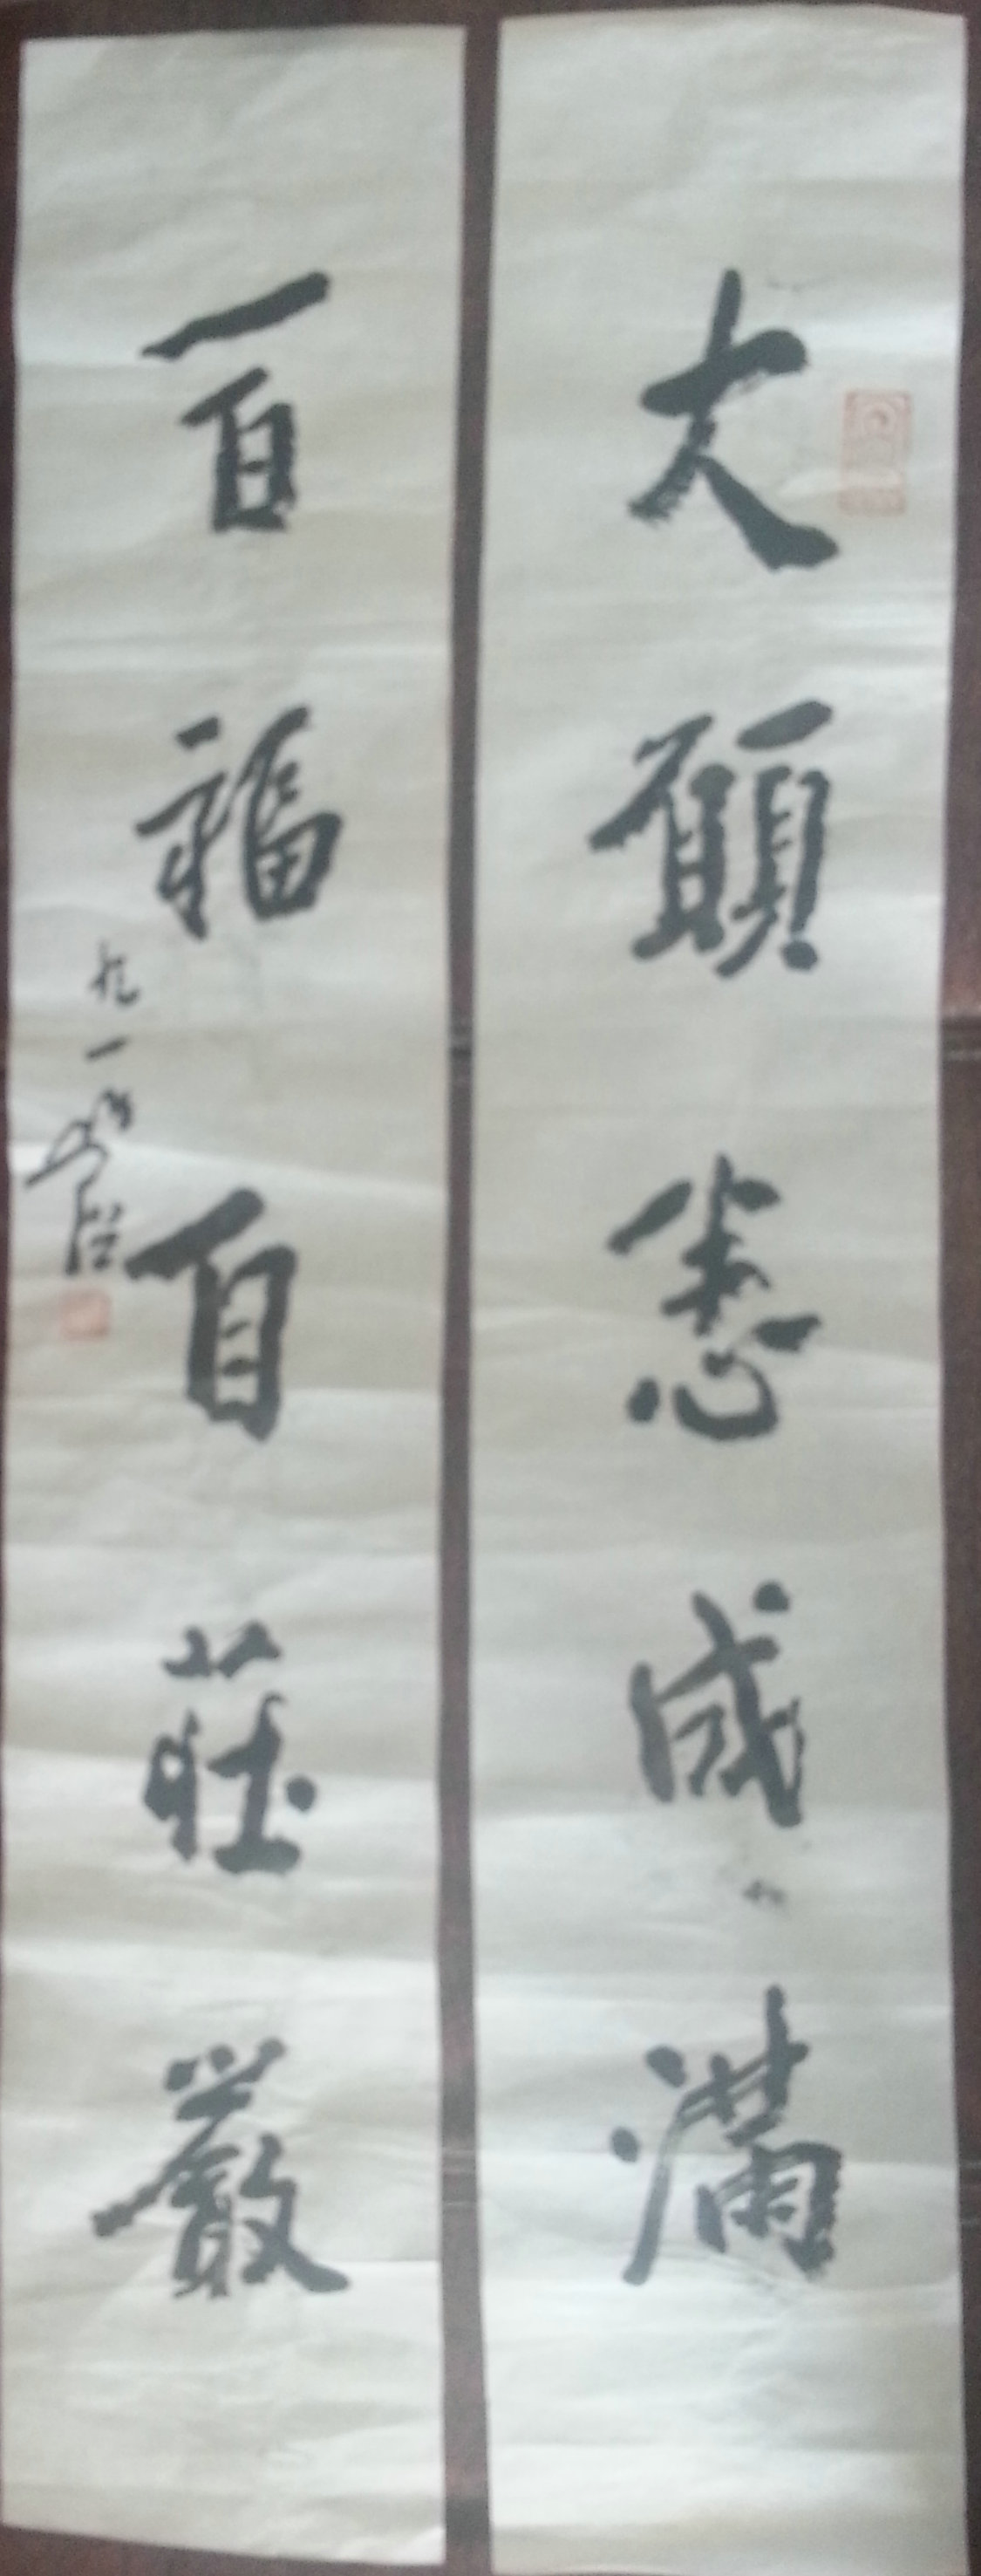 大願悉成滿
百福自莊嚴
九一